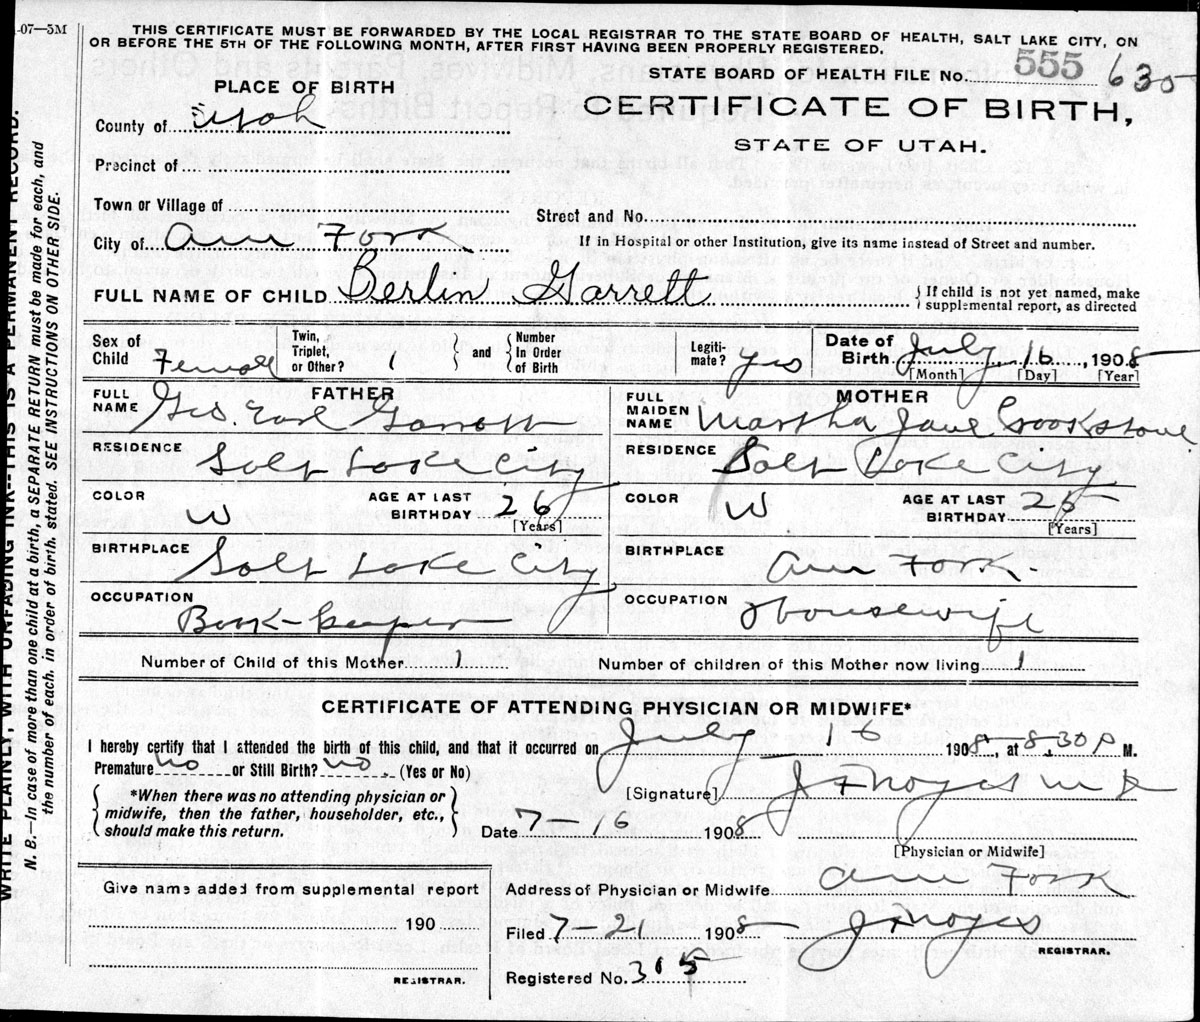 -07—5M
THIS CERTIFICATE MUST BE FORWARDED BY THE LOCAL REGISTRAR TO THE STATE BOARD OF HEALTH, SALT LAKE CITY, ON
OR BEFORE THE 5TH OF THE FOLLOWING MONTH, AFTER FIRST HAVING BEEN PROPERLY REGISTERED.
STATE BOARD OF HEALTH FILE No. 555 635
PLACE OF BIRTH
CERTIFICATE OF BIRTH,
STATE OF UTAH.
County of Utah
Precinct of
Town or Village of
Street and No.
City of Am Fork
If in Hospital or other Institution, give its name instead of Street and number.
FULL NAME OF CHILD Berlin Garrett
{ If child is not yet named, make
supplemental report, as directed
Sex of Child Female
Twin, Triplet, or Other? 1 } and { Number In Order of Birth
Legiti-mate? yes
Date of Birth July 16, 1908
[Month] [Day] [Year]
FATHER
FULL NAME Geo. Earl Garrett
MOTHER
FULL MAIDEN NAME Martha Jane
RESIDENCE Salt Lake City
RESIDENCE Salt Lake City
COLOR W AGE AT LAST BIRTHDAY 26 [Years]
COLOR W AGE AT LAST BIRTHDAY 25 [Years]
BIRTHPLACE Salt Lake City
BIRTHPLACE Am Fork.
OCCUPATION Book-keeper
OCCUPATION Housewife
Number of Child of this Mother 1
Number of children of this Mother now living 1
CERTIFICATE OF ATTENDING PHYSICIAN OR MIDWIFE*
I hereby certify that I attended the birth of this child, and that it occurred on July 16 1908, at 8.30 P M.
Premature no or Still Birth? no. (Yes or No)
[Signature] J F Noyes M D
{ *When there was no attending physician or
midwife, then the father, householder, etc.,
should make this return. }
Date 7-16 1908
[Physician or Midwife]
Give name added from supplemental report
190
REGISTRAR.
Address of Physician or Midwife Am Fork
Filed 7-21 1908 J F Noyes
REGISTRAR.
Registered No. 315
WRITE PLAINLY, WITH UNFADING INK--THIS IS A PERMANENT RECORD.
N. B.—In case of more than one child at a birth, a SEPARATE RETURN must be made for each, and
the number of each, in order of birth, stated. SEE INSTRUCTIONS ON OTHER SIDE.